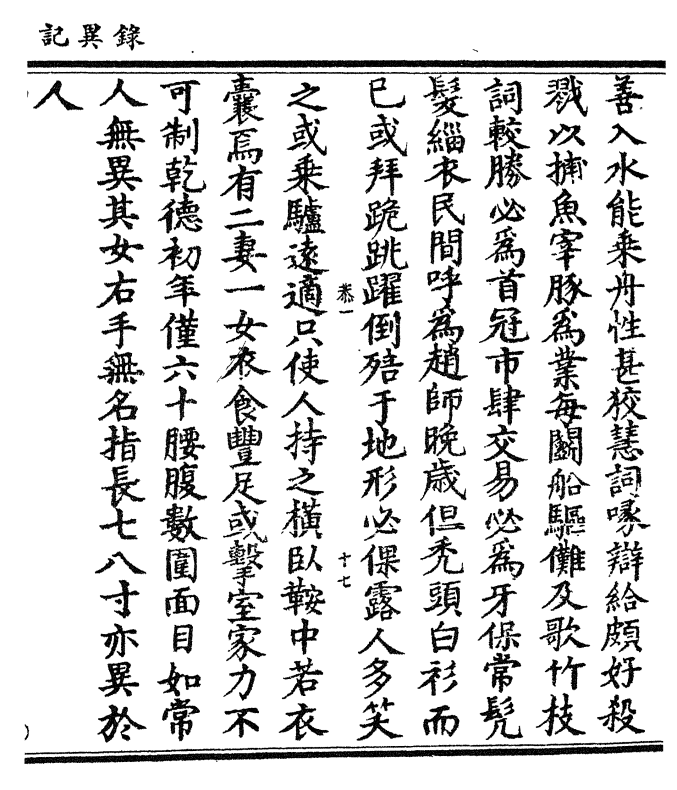 錄異記
善入水能乗舟性甚狡慧詞喙辯給頗好殺
戮以捕魚宰豚爲業每鬭船驅儺及歌竹枝
詞較勝必爲首冠市肆交易必爲牙保常髡
髮緇衣民間呼爲趙師晚歲但秃頭白衫而
已或拜跪跳躍倒踣于地形必倮露人多笑
卷一
十七
之或乗驢逺適只使人持之橫臥鞍中若衣
囊焉有二妻一女衣食豐足或擊室家力不
可制乾德初年僅六十腰腹數圍面目如常
人無異其女右手無名指長七八寸亦異於
人